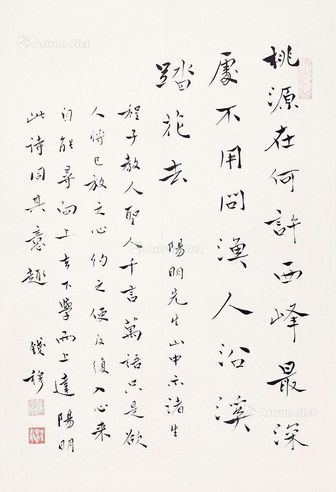 桃源在何許西峰最深
處不用問漁人沿溪
踏花去
陽明先生山中示諸生
程子教人聖人千言萬語只是欲
人將已放之心約之使反復入心來
自能尋向上去下學而上達陽明
此詩同其意趣
錢穆
Artron.Net